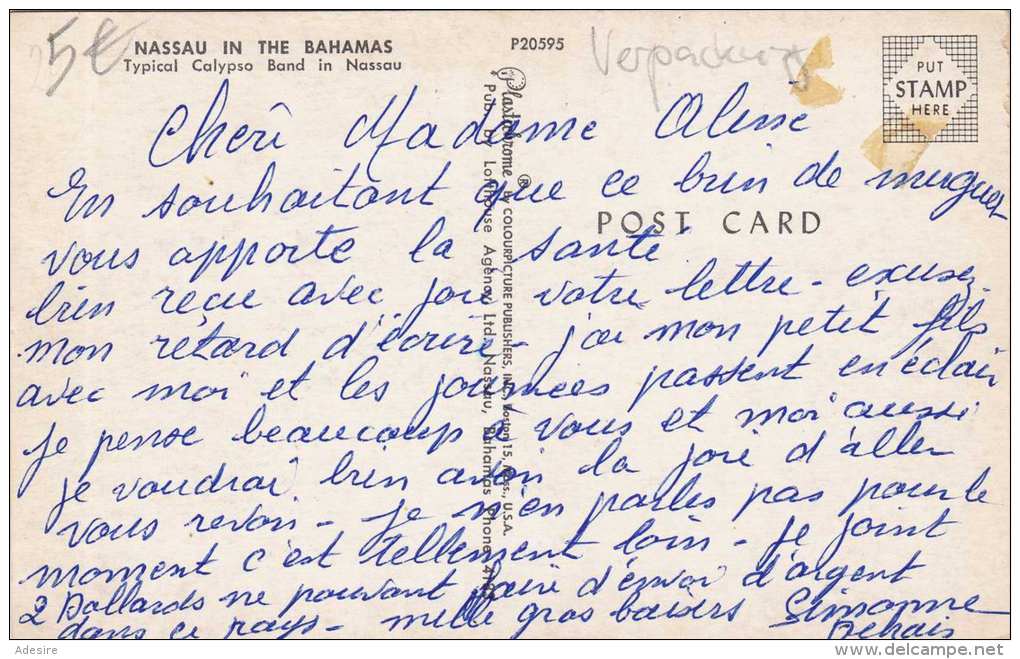 25€
NASSAU IN THE BAHAMAS
Typical Calypso Band in Nassau
P20595
Verpackung
PUT
STAMP
HERE
POST CARD
Plastichrome ® by COLOURPICTURE PUBLISHERS, INC., Boston 15, Mass., U.S.A.
Pub. by Lofthouse Agency Ltd., Nassau, Bahamas Phone
Cheri Madame Alisse
En souhaitant que ce brin de muguet
vous apporte la santé
bien reçue avec joie votre lettre - excusez
mon retard d'écrire - j'ai mon petit fils
avec moi et les journées passent en éclair
je pense beaucoup à vous et moi aussi
je voudrai bien avoir la joie d'aller
vous revoir - je n'en parles pas pour le
moment c'est tellement loin - je joint
2 Dollards ne pouvant faire d'envoi d'argent
dans ce pays - mille gros baisers Simonne